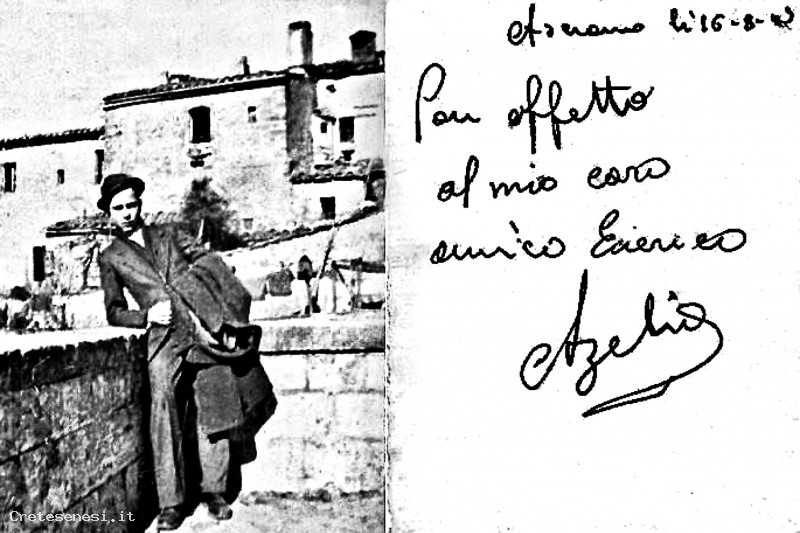 Asciano lì 16-8-42
Con affetto
al mio caro
amico
Azelio
Cretesenesi.it